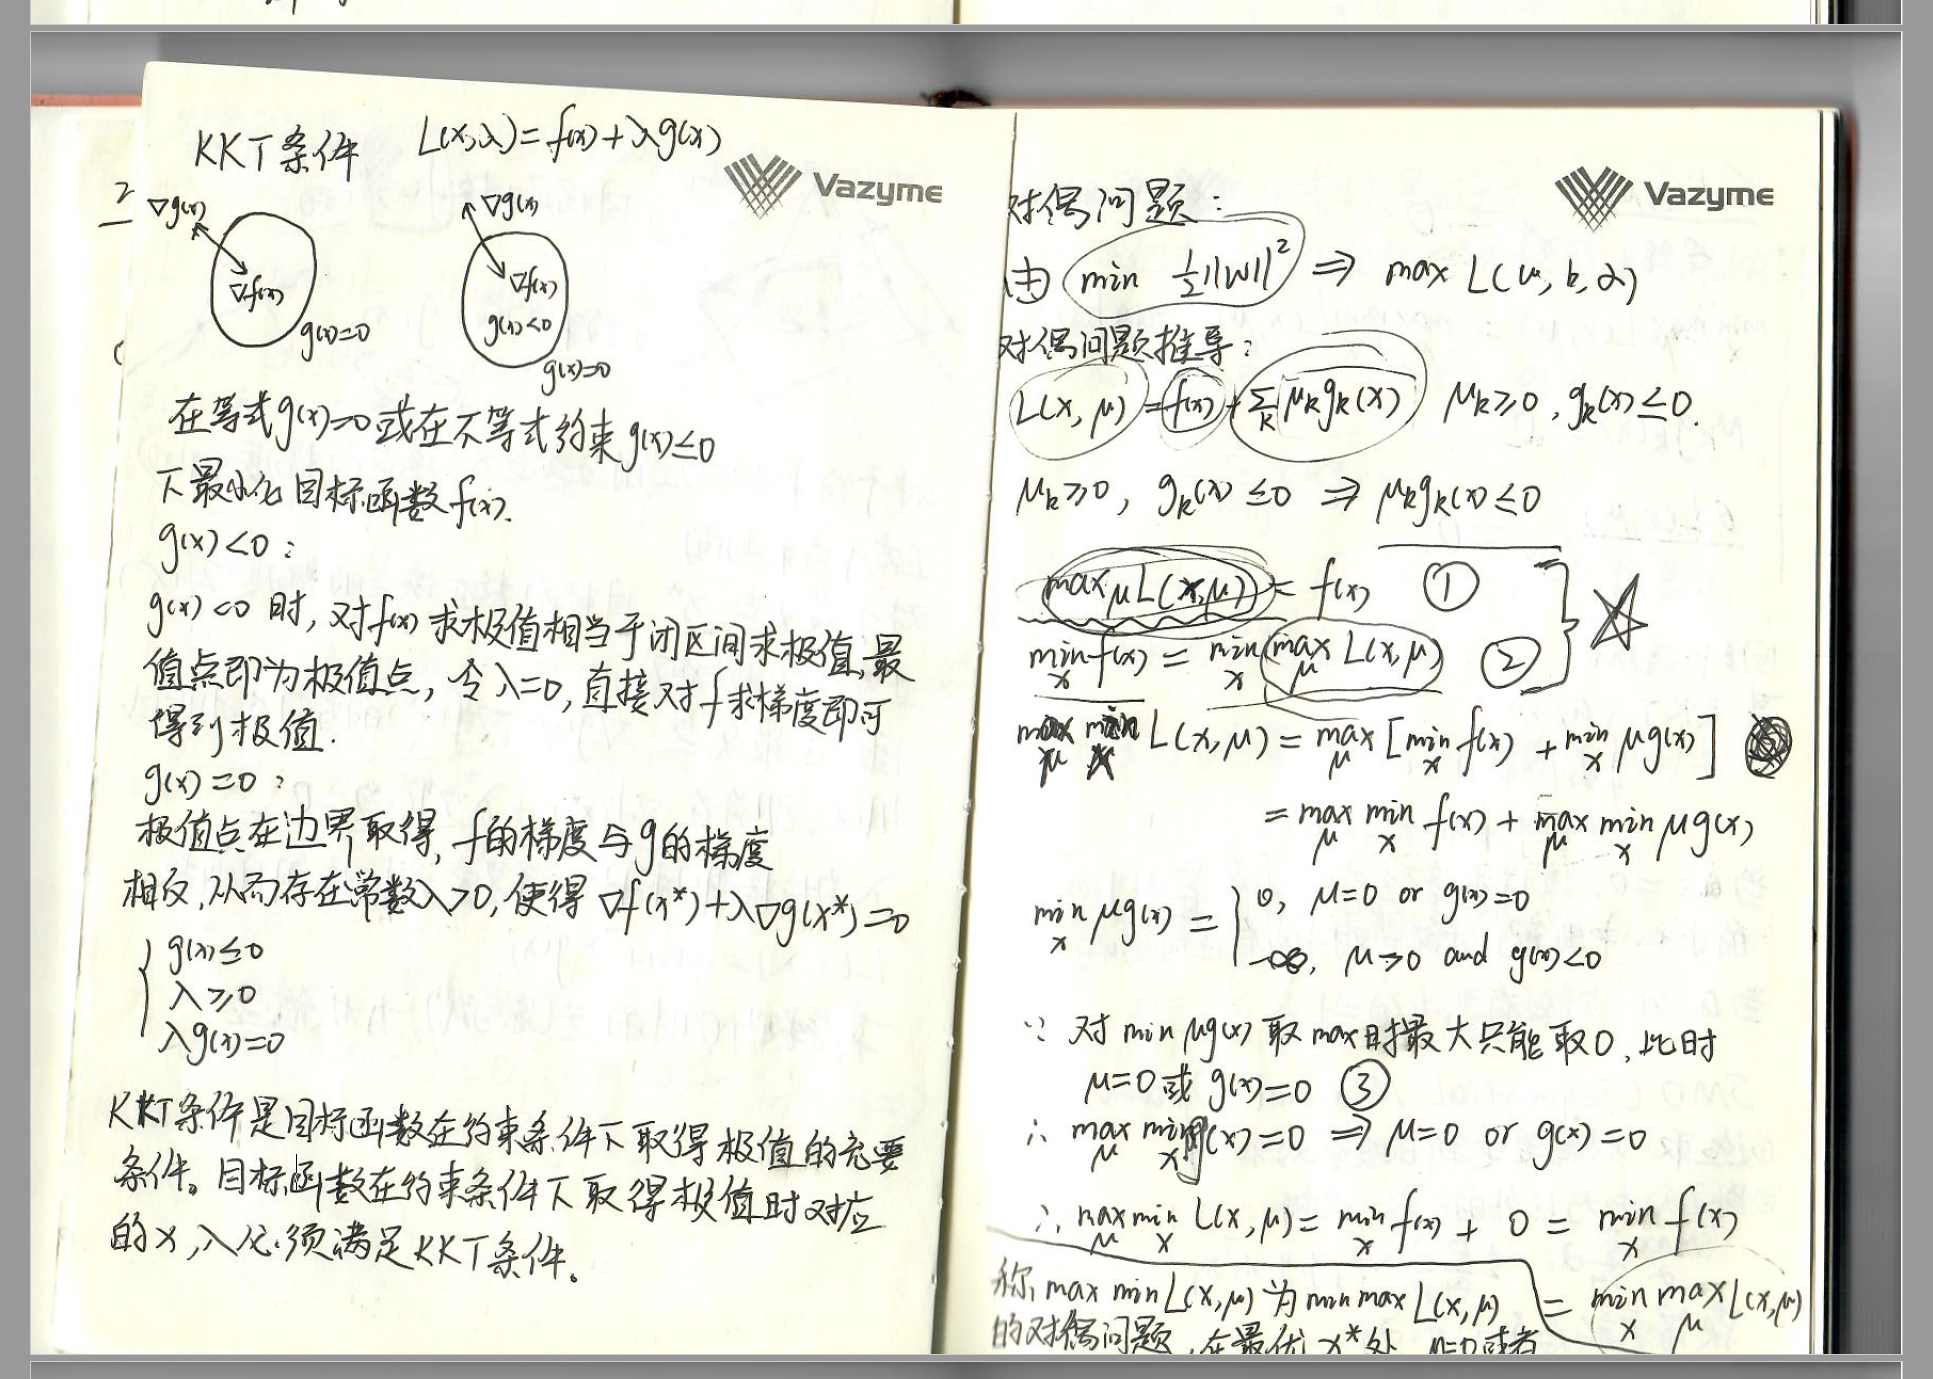 KKT条件 L(x,λ)=f(x)+λg(x)
Vazyme
∇g(x) ∇g(x)
∇f(x) ∇f(x)
g(x)<0
g(x)=0
g(x)=0
在等式g(x)=0或在不等式约束g(x)≤0
下最小化目标函数f(x).
g(x)<0:
g(x)<0时,对f(x)求极值相当于闭区间求极值,最
值点即为极值点,令λ=0,直接对f求梯度即可
得到极值.
g(x)=0:
极值点在边界取得,f的梯度与g的梯度
相反,从而存在常数λ>0,使得∇f(x*)+λ∇g(x*)=0
g(x)≤0
λ≥0
λg(x)=0
KKT条件是目标函数在约束条件下取得极值的充要
条件。目标函数在约束条件下取得极值时对应
的x,λ必须满足KKT条件。
Vazyme
对偶问题:
由 min ½||W||² ⇒ max L(w,b,α)
对偶问题推导:
L(x,μ)=f(x)+∑k μkgk(x) μk≥0,gk(x)≤0.
μk≥0, gk(x)≤0 ⇒ μkgk(x)≤0
maxμL(x,μ)=f(x) ①
min x f(x) = min x max μ L(x,μ) ②
max μ min x L(x,μ) = max μ [min x f(x) + min x μg(x)]
= max μ min x f(x) + max μ min x μg(x)
min x μg(x) = { 0, μ=0 or g(x)=0
-∞, μ>0 and g(x)<0
∵ 对min μg(x)取max时最大只能取0,此时
μ=0或g(x)=0 ③
∴ max μ min x μg(x)=0 ⇒ μ=0 or g(x)=0
∴ max μ min x L(x,μ) = min x f(x) + 0 = min x f(x)
= min x max μ L(x,μ)
称 max min L(x,μ) 为 min max L(x,μ)
的对偶问题,在最优x*处 μ=0或者